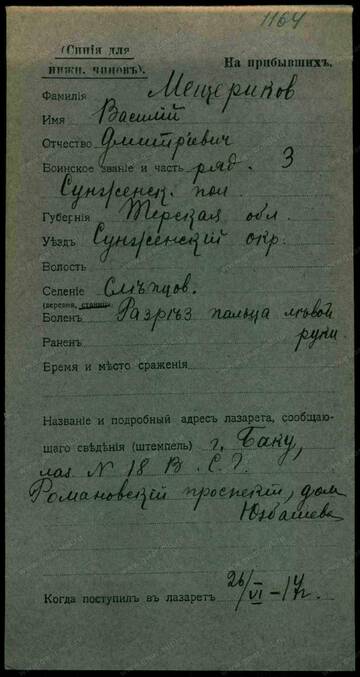 1164
(Синія для
нижн. чиновъ).
На прибывшихъ.
Фамилія Мещериков
Имя Василій
Отчество Дмитріевич
Воинское званіе и часть ряд. 3
Сунженск. пол.
Губернія Терская обл.
Уѣздъ Сунженскій окр.
Волость
Селеніе Слѣпцов.
(деревня, станица)
Боленъ Разрѣз пальца лѣвой
руки.
Раненъ
Время и мѣсто сраженія
Названіе и подробный адресъ лазарета, сообщаю-
щаго свѣдѣнія (штемпель) г. Баку,
лаз N 18 В. С. Г.
Романовскій проспект, дом
Юзбашева
Когда поступилъ въ лазаретъ 26/VI – 17 г.